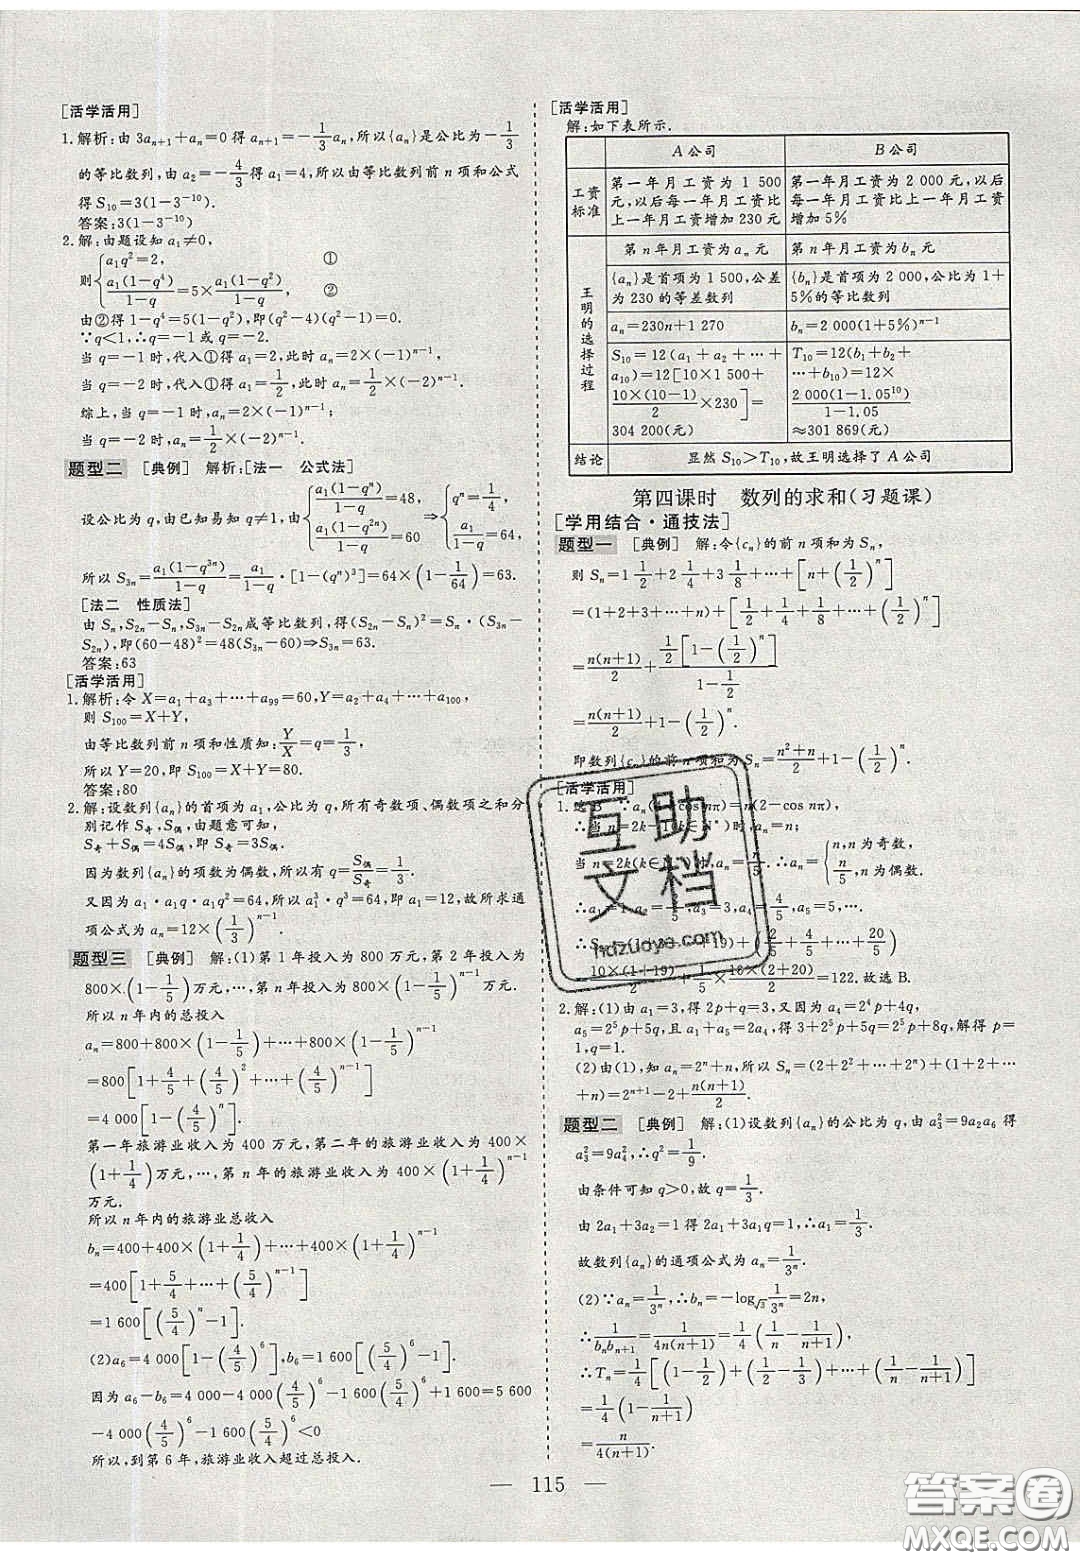 [活学活用]
1.解析:由 3aₙ₊₁+aₙ=0 得 aₙ₊₁=-1/3 aₙ,所以{aₙ}是公比为-1/3
的等比数列,由 a₂=-4/3得 a₁=4,所以由等比数列前 n 项和公式
得 S₁₀=3(1-3⁻¹⁰).
答案:3(1-3⁻¹⁰)
2.解:由题设知 a₁≠0,
则{a₁q²=2, ①
a₁(1-q⁴)/(1-q)=5×a₁(1-q²)/(1-q), ②
由②得 1-q⁴=5(1-q²),即(q²-4)(q²-1)=0.
∵q<1,∴q=-1 或 q=-2.
当 q=-1 时,代入①得 a₁=2,此时 aₙ=2×(-1)ⁿ⁻¹,
当 q=-2 时,代入①得 a₁=1/2,此时 aₙ=1/2×(-2)ⁿ⁻¹.
综上,当 q=-1 时,aₙ=2×(-1)ⁿ⁻¹;
当 q=-2 时,aₙ=1/2×(-2)ⁿ⁻¹.
题型二 [典例] 解析:[法一 公式法]
设公比为 q,由已知易知 q≠1,由{a₁(1-qⁿ)/(1-q)=48, a₁(1-q²ⁿ)/(1-q)=60 ⇒{qⁿ=1/4, a₁/(1-q)=64,
所以 S₃ₙ=a₁(1-q³ⁿ)/(1-q)=a₁/(1-q)·[1-(qⁿ)³]=64×(1-1/64)=63.
[法二 性质法]
由 Sₙ,S₂ₙ-Sₙ,S₃ₙ-S₂ₙ成等比数列,得(S₂ₙ-Sₙ)²=Sₙ·(S₃ₙ-
S₂ₙ),即(60-48)²=48(S₃ₙ-60)⇒S₃ₙ=63.
答案:63
[活学活用]
1.解析:令 X=a₁+a₃+…+a₉₉=60,Y=a₂+a₄+…+a₁₀₀,
则 S₁₀₀=X+Y,
由等比数列前 n 项和性质知:Y/X=q=1/3,
所以 Y=20,即 S₁₀₀=X+Y=80.
答案:80
2.解:设数列{aₙ}的首项为 a₁,公比为 q,所有奇数项、偶数项之和分
别记作 S奇,S偶,由题意可知,
S奇+S偶=4S偶,即 S奇=3S偶.
因为数列{aₙ}的项数为偶数,所以有 q=S偶/S奇=1/3.
又因为 a₁·a₁q·a₁q²=64,所以 a₁³·q³=64,即 a₁=12,故所求通
项公式为 aₙ=12×(1/3)ⁿ⁻¹.
题型三 [典例] 解:(1)第 1 年投入为 800 万元,第 2 年投入为
800×(1-1/5)万元,…,第 n 年投入为 800×(1-1/5)ⁿ⁻¹万元.
所以 n 年内的总投入
aₙ=800+800×(1-1/5)+…+800×(1-1/5)ⁿ⁻¹
=800[1+4/5+(4/5)²+…+(4/5)ⁿ⁻¹]
=4 000[1-(4/5)ⁿ].
第一年旅游业收入为 400 万元,第二年的旅游业收入为 400×
(1+1/4)万元,…,第 n 年的旅游业收入为 400×(1+1/4)ⁿ⁻¹
万元.
所以 n 年内的旅游业总收入
bₙ=400+400×(1+1/4)+…+400×(1+1/4)ⁿ⁻¹
=400[1+5/4+…+(5/4)ⁿ⁻¹]
=1 600[(5/4)ⁿ-1].
(2)a₆=4 000[1-(4/5)⁶],b₆=1 600[(5/4)⁶-1].
因为 a₆-b₆=4 000-4 000(4/5)⁶-1 600(5/4)⁶+1 600=5 600
-4 000(4/5)⁶-1 600(5/4)⁶<0
所以,到第 6 年,旅游业收入超过总投入.
[活学活用]
解:如下表所示.
A 公司 B 公司
工资标准 第一年月工资为 1 500元,以后每一年月工资比上一年月工资增加 230 元 第一年月工资为 2 000 元,以后每一年月工资比上一年月工资增加 5%
王明的选择过程 第 n 年月工资为 aₙ 元 第 n 年月工资为 bₙ 元
{aₙ}是首项为 1 500,公差为 230 的等差数列 {bₙ}是首项为 2 000,公比为 1+5%的等比数列
aₙ=230n+1 270 bₙ=2 000(1+5%)ⁿ⁻¹
S₁₀=12(a₁+a₂+…+a₁₀)=12[10×1 500+10×(10-1)/2×230]=304 200(元) T₁₀=12(b₁+b₂+…+b₁₀)=12×2 000(1-1.05¹⁰)/(1-1.05)≈301 869(元)
结论 显然 S₁₀>T₁₀,故王明选择了 A 公司
第四课时 数列的求和(习题课)
[学用结合·通技法]
题型一 [典例] 解:令{cₙ}的前 n 项和为 Sₙ,
则 Sₙ=1 1/2+2 1/4+3 1/8+…+[n+(1/2)ⁿ]
=(1+2+3+…+n)+[1/2+1/4+1/8+…+(1/2)ⁿ]
=n(n+1)/2+1/2[1-(1/2)ⁿ]/(1-1/2)
=n(n+1)/2+1-(1/2)ⁿ.
即数列{cₙ}的前 n 项和为 Sₙ=(n²+n)/2+1-(1/2)ⁿ.
[活学活用]
1.选 B ∵aₙ(2-cos nπ)=n(2-cos nπ),
∴当 n=2k-1(k∈N*)时,aₙ=n;
当 n=2k(k∈N*)时,aₙ=n/5.∴aₙ={n,n 为奇数, n/5,n 为偶数.
∴a₁=1,a₂=2/5,a₃=3,a₄=4/5,a₅=5,….
+19)+(2/5+4/5+…+20/5)
10×(1+19)/2+1/5×10×(2+20)/2=122.故选 B.
2.解:(1)由 a₁=3,得 2p+q=3,又因为 a₄=2⁴p+4q,
a₅=2⁵p+5q,且 a₁+a₅=2a₄,得 3+2⁵p+5q=2⁵p+8q,解得 p=
1,q=1.
(2)由(1),知 aₙ=2ⁿ+n,所以 Sₙ=(2+2²+…+2ⁿ)+(1+2+…
+n)=2ⁿ⁺¹-2+n(n+1)/2.
题型二 [典例] 解:(1)设数列{aₙ}的公比为 q,由 a₃²=9a₂a₆ 得
a₃²=9a₄²,∴q²=1/9.
由条件可知 q>0,故 q=1/3.
由 2a₁+3a₂=1 得 2a₁+3a₁q=1,∴a₁=1/3.
故数列{aₙ}的通项公式为 aₙ=1/3ⁿ.
(2)∵aₙ=1/3ⁿ,∴bₙ=-log√3 1/3ⁿ=2n,
∴1/(bₙbₙ₊₁)=1/(4n(n+1))=1/4(1/n-1/(n+1)),
∴Tₙ=1/4[(1-1/2)+(1/2-1/3)+…+(1/n-1/(n+1))]
=1/4(1-1/(n+1))
=n/(4(n+1)).
— 115 —
互助文档
hdzuoye.com
答案圈
MXQE.COM